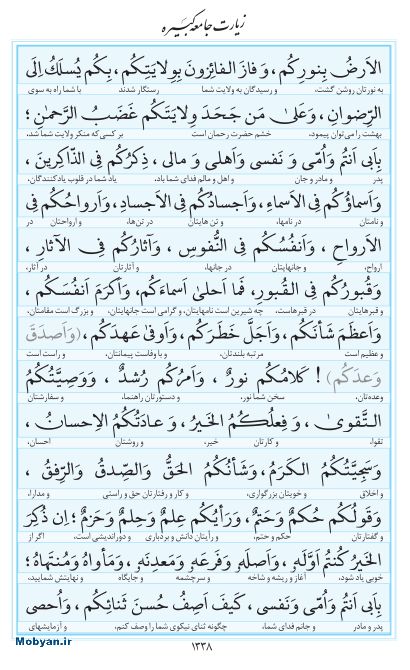 زیارت جامعه کبیره
الاَرضُ بِنورِکُم، وَ فازَ الفائِزونَ بِوِلایَتِکُم، بِکُم یُسلَکُ اِلَی
به نورتان روشن گشت، و رسیدگان به ولایت شما رستگار شدند با شما راه به سوی
الرِّضوانِ، وَعَلیٰ مَن جَحَدَ وِلایَتَکُم غَضَبُ الرَّحمٰنِ؛
بهشت را می‌توان پیمود، خشم حضرت رحمان است بر کسی که منکر ولایت شما شد،
بِاَبی اَنتُم وَاُمّی وَ نَفسی وَاَهلی وَ مالی، ذِکرُکُم فِی الذّاکِرینَ،
پدر و مادر و جان و اهل و مالم فدای شما باد، یاد شما در قلوب یادکنندگان،
وَاَسماؤُکُم فِی الاَسماءِ، وَاَجسادُکُم فِی الاَجسادِ، وَاَرواحُکُم فِی
و نامتان در نام‌ها، و تن‌هایتان در تن‌ها، و ارواحتان در
الاَرواحِ، وَاَنفُسُکُم فِی النُّفوسِ، وَآثارُکُم فِی الآثارِ،
ارواح، و جانهایتان در جانها، و آثارتان در آثار،
وَقُبورُکُم فِی القُبورِ، فَما اَحلیٰ اَسماءَکُم، وَاَکرَمَ اَنفُسَکُم،
و قبرهایتان در قبرهاست، چه شیرین است نامهایتان، و گرامی است جانهایتان، و بزرگ است مقامتان،
وَاَعظَمَ شَأنَکُم، وَاَجَلَّ خَطَرَکُم، وَاَوفیٰ عَهدَکُم، (وَاَصدَقَ
و عظیم است مرتبه بلندتان، و با وفاست پیمانتان، و راست است
وَعدَکُم)! کَلامُکُم نورٌ، وَاَمرُکُم رُشدٌ، وَوَصِیَّتُکُمُ
وعده‌تان، سخن شما نور، و دستورتان راهنما، و سفارشتان
التَّقویٰ، وَ فِعلُکُمُ الخَیرُ، وَ عادَتُکُمُ الاِحسانُ،
تقوا، و کارتان خیر، و روشتان احسان،
وَسَجِیَّتُکُمُ الکَرَمُ، وَشَأنُکُمُ الحَقُّ وَالصِّدقُ وَالرِّفقُ،
و اخلاق و خویتان بزرگواری، و کار و رفتارتان حق و راستی و مدارا،
وَقَولُکُم حُکمٌ وَحَتمٌ، وَرَأیُکُم عِلمٌ وَحِلمٌ وَحَزمٌ؛ اِن ذُکِرَ
و گفتارتان حکم و حتم، و رایتان دانش و بردباری و دوراندیشی است، اگر از
الخَیرُ کُنتُم اَوَّلَهٗ، وَاَصلَهٗ وَفَرعَهٗ وَمَعدِنَهٗ، وَمَأواهُ وَمُنتَهاهُ؛
خوبی یاد شود، آغاز و ریشه و شاخه و سرچشمه و جایگاه و نهایتش شمایید،
بِاَبی اَنتُم وَاُمّی وَنَفسی، کَیفَ اَصِفُ حُسنَ ثَنائِکُم، وَاُحصی
پدر و مادر و جانم فدای شما، چگونه ثنای نیکوی شما را وصف کنم، و آزمایشهای
۱۳۳۸
Mobyan.ir